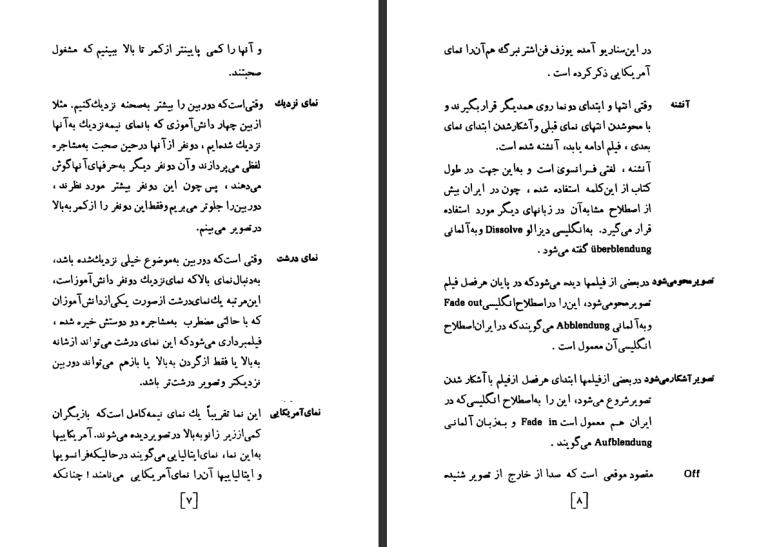 و آنها را کمی پایینتر از کمر تا بالا ببینیم که مشغول
صحبتند.
نمای نزدیك وقتی‌است‌که دوربین را بیشتر به‌صحنه نزدیك‌کنیم. مثلا
ازبین چهار دانش‌آموزی که بانمای نیمه‌نزدیك به‌آنها
نزدیك شده‌ایم ، دونفر از آنها درحین صحبت به‌مشاجره
لفظی می‌پردازند وآن دونفر دیگر به‌حرفهای‌آنهاگوش
می‌دهند ، پس چون این دونفر بیشتر مورد نظرند ،
دوربین‌را جلوتر می‌بریم وفقط‌این دونفر را ازکمر به‌بالا
درتصویر می‌بینم.
نمای درشت وقتی است‌که دوربین به‌موضوع خیلی نزدیك‌شده باشد،
به‌دنبال‌نمای بالاکه نمای‌نزدیك دونفر دانش‌آموزاست،
این‌مرتبه یك‌نمای‌درشت ازصورت یکی‌ازدانش‌آموزان
که با حالتی مضطرب به‌مشاجره دو دوستش خیره شده ،
فیلمبرداری می‌شودکه این نمای درشت می‌تواند ازشانه
به‌بالا یا فقط ازگردن به‌بالا یا بازهم می‌تواند دوربین
نزدیکتر وتصویر درشت‌تر باشد.
نمای‌آمریکایی این نما تقریباً یك نمای نیمه‌کامل است‌که بازیگران
کمی‌اززیر زانو به‌بالا درتصویر دیده می‌شوند. آمریکاییها
به‌این نما، نمای‌ایتالیایی می‌گویند درحالیکه‌فرانسویها
و ایتالیاییها آن‌را نمای‌آمریکایی می‌نامند ! چنانکه
[۷]
در این‌سناریو آمده یوزف فن‌اشترنبرگ هم‌آن‌را نمای
آمریکایی ذکرکرده است .
آنشنه وقتی انتها و ابتدای دونما روی همدیگر قراربگیرند و
با محوشدن انتهای نمای قبلی و آشکارشدن ابتدای نمای
بعدی ، فیلم ادامه یابد، آنشنه شده است.
آنشنه ، لغتی فرانسوی است و به‌این جهت در طول
کتاب از این‌کلمه استفاده شده ، چون در ایران بیش
از اصطلاح مشابه‌آن در زبانهای دیگر مورد استفاده
قرار می‌گیرد. به‌انگلیسی دیزالو Dissolve وبه‌آلمانی
überblendung گفته می‌شود .
تصویرمحومی‌شود دربعضی از فیلمها دیده می‌شودکه در پایان هرفصل فیلم
تصویرمحومی‌شود، این‌را دراصطلاح‌انگلیسیFade out
وبه‌آلمانی Abblendung می‌گویندکه درایران‌اصطلاح
انگلیسی‌آن معمول است .
تصویرآشکارمی‌شود دربعضی ازفیلمها ابتدای هرفصل ازفیلم باآشکار شدن
تصویرشروع می‌شود، این را به‌اصطلاح انگلیسی‌که در
ایران هم معمول است Fade in و به‌زبان آلمانی
Aufblendung می‌گویند .
Off مقصود موقعی است که صدا از خارج از تصویر شنیده
[۸]